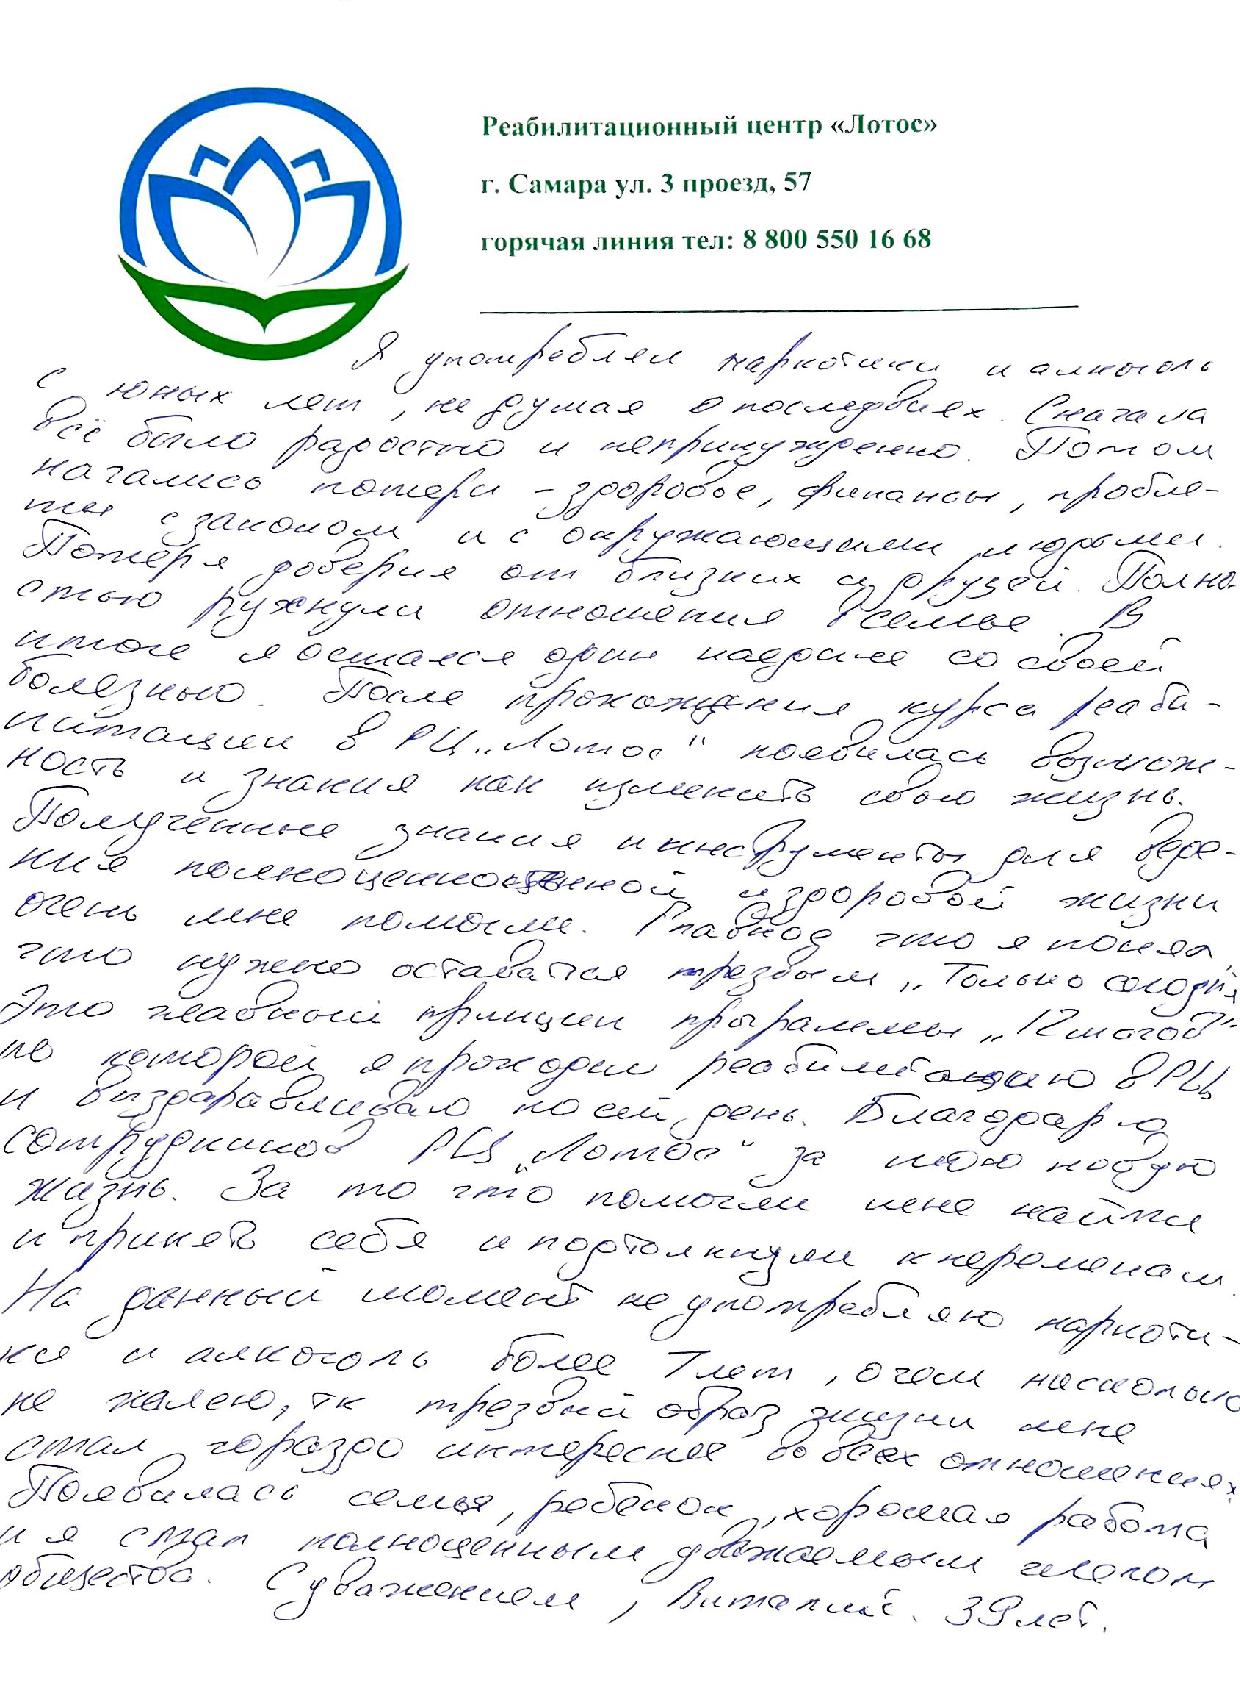 Реабилитационный центр «Лотос»
г. Самара ул. 3 проезд, 57
горячая линия тел: 8 800 550 16 68
Я употреблял наркотики и алкоголь
с юных лет, не думая о последвиях. Сначала
всё было радостно и непринужденно. Потом
начались потери - здоровье, финансы, пробле-
мы с законом и с окружающими людьми.
Потеря доверия от близких и друзей. Полно-
стью рухнули отношения в семье. В
итоге я остался один наедине со своей
болезнью. После прохождения курса реаби-
литации в РЦ „Лотос" появилась возмож-
ность и знания как изменить свою жизнь.
Полученные знания и инструменты для веде-
ния полноценной и здоровой жизни
очень мне помогли. Главное что я понял
что нужно оставаться трезвым „Только сегодня"
Это главный принцип программы „12 шагов"
по которой я проходил реабилитацию в РЦ
и выздоравливаю по сей день. Благодарю
сотрудников РЦ „Лотос" за мою новую
жизнь. За то что помогли мне найти
и принять себя и подтолкнули к переменам.
На данный момент не употребляю наркоти-
ки и алкоголь более 7 лет, о чем нисколько
не жалею, тк трезвый образ жизни мне
стал гораздо интереснее во всех отношениях.
Появилась семья, ребёнок, хорошая работа
и я стал полноценным уважаемым членом
общества. С уважением, Виталий. 39 лет.